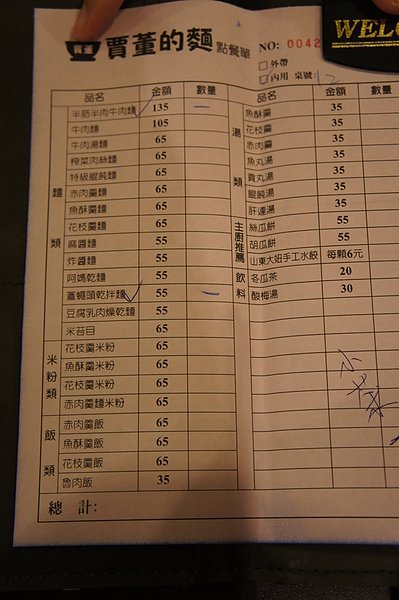 賈董的麵 點餐單
NO: 0042
WELC
外帶
內用 桌號: 2
品名 金額 數量 品名 金額 數量
麵類
半筋半肉牛肉麵 135 一
牛肉麵 105
牛肉湯麵 65
榨菜肉絲麵 65
特級餛飩麵 65
赤肉羹麵 65
魚酥羹麵 65
花枝羹麵 65
麻醬麵 55
炸醬麵 55
阿媽乾麵 55
蒼蠅頭乾拌麵 55 一
豆腐乳肉燥乾麵 55
米苔目 65
米粉類
花枝羹米粉 65
魚酥羹米粉 65
花枝羹米粉 65
赤肉羹麵米粉 65
飯類
赤肉羹飯 65
魚酥羹飯 65
花枝羹飯 65
魯肉飯 35
總 計:
湯類
魚酥羹 35
花枝羹 35
赤肉羹 35
魚丸湯 35
貢丸湯 35
餛飩湯 35
肝連湯 35
主廚推薦
絲瓜餅 55
胡瓜餅 55
山東大妞手工水餃 每顆6元
飲料
冬瓜茶 20
酸梅湯 30